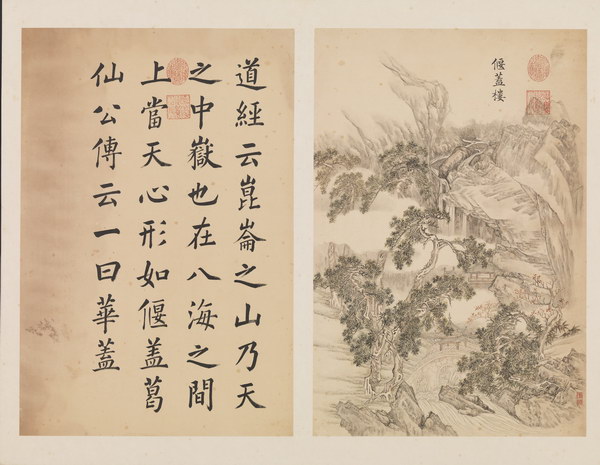 道經云崑崙之山乃天
之中嶽也在八海之間
上當天心形如偃盖葛
仙公傳云一曰華蓋
偃蓋樓